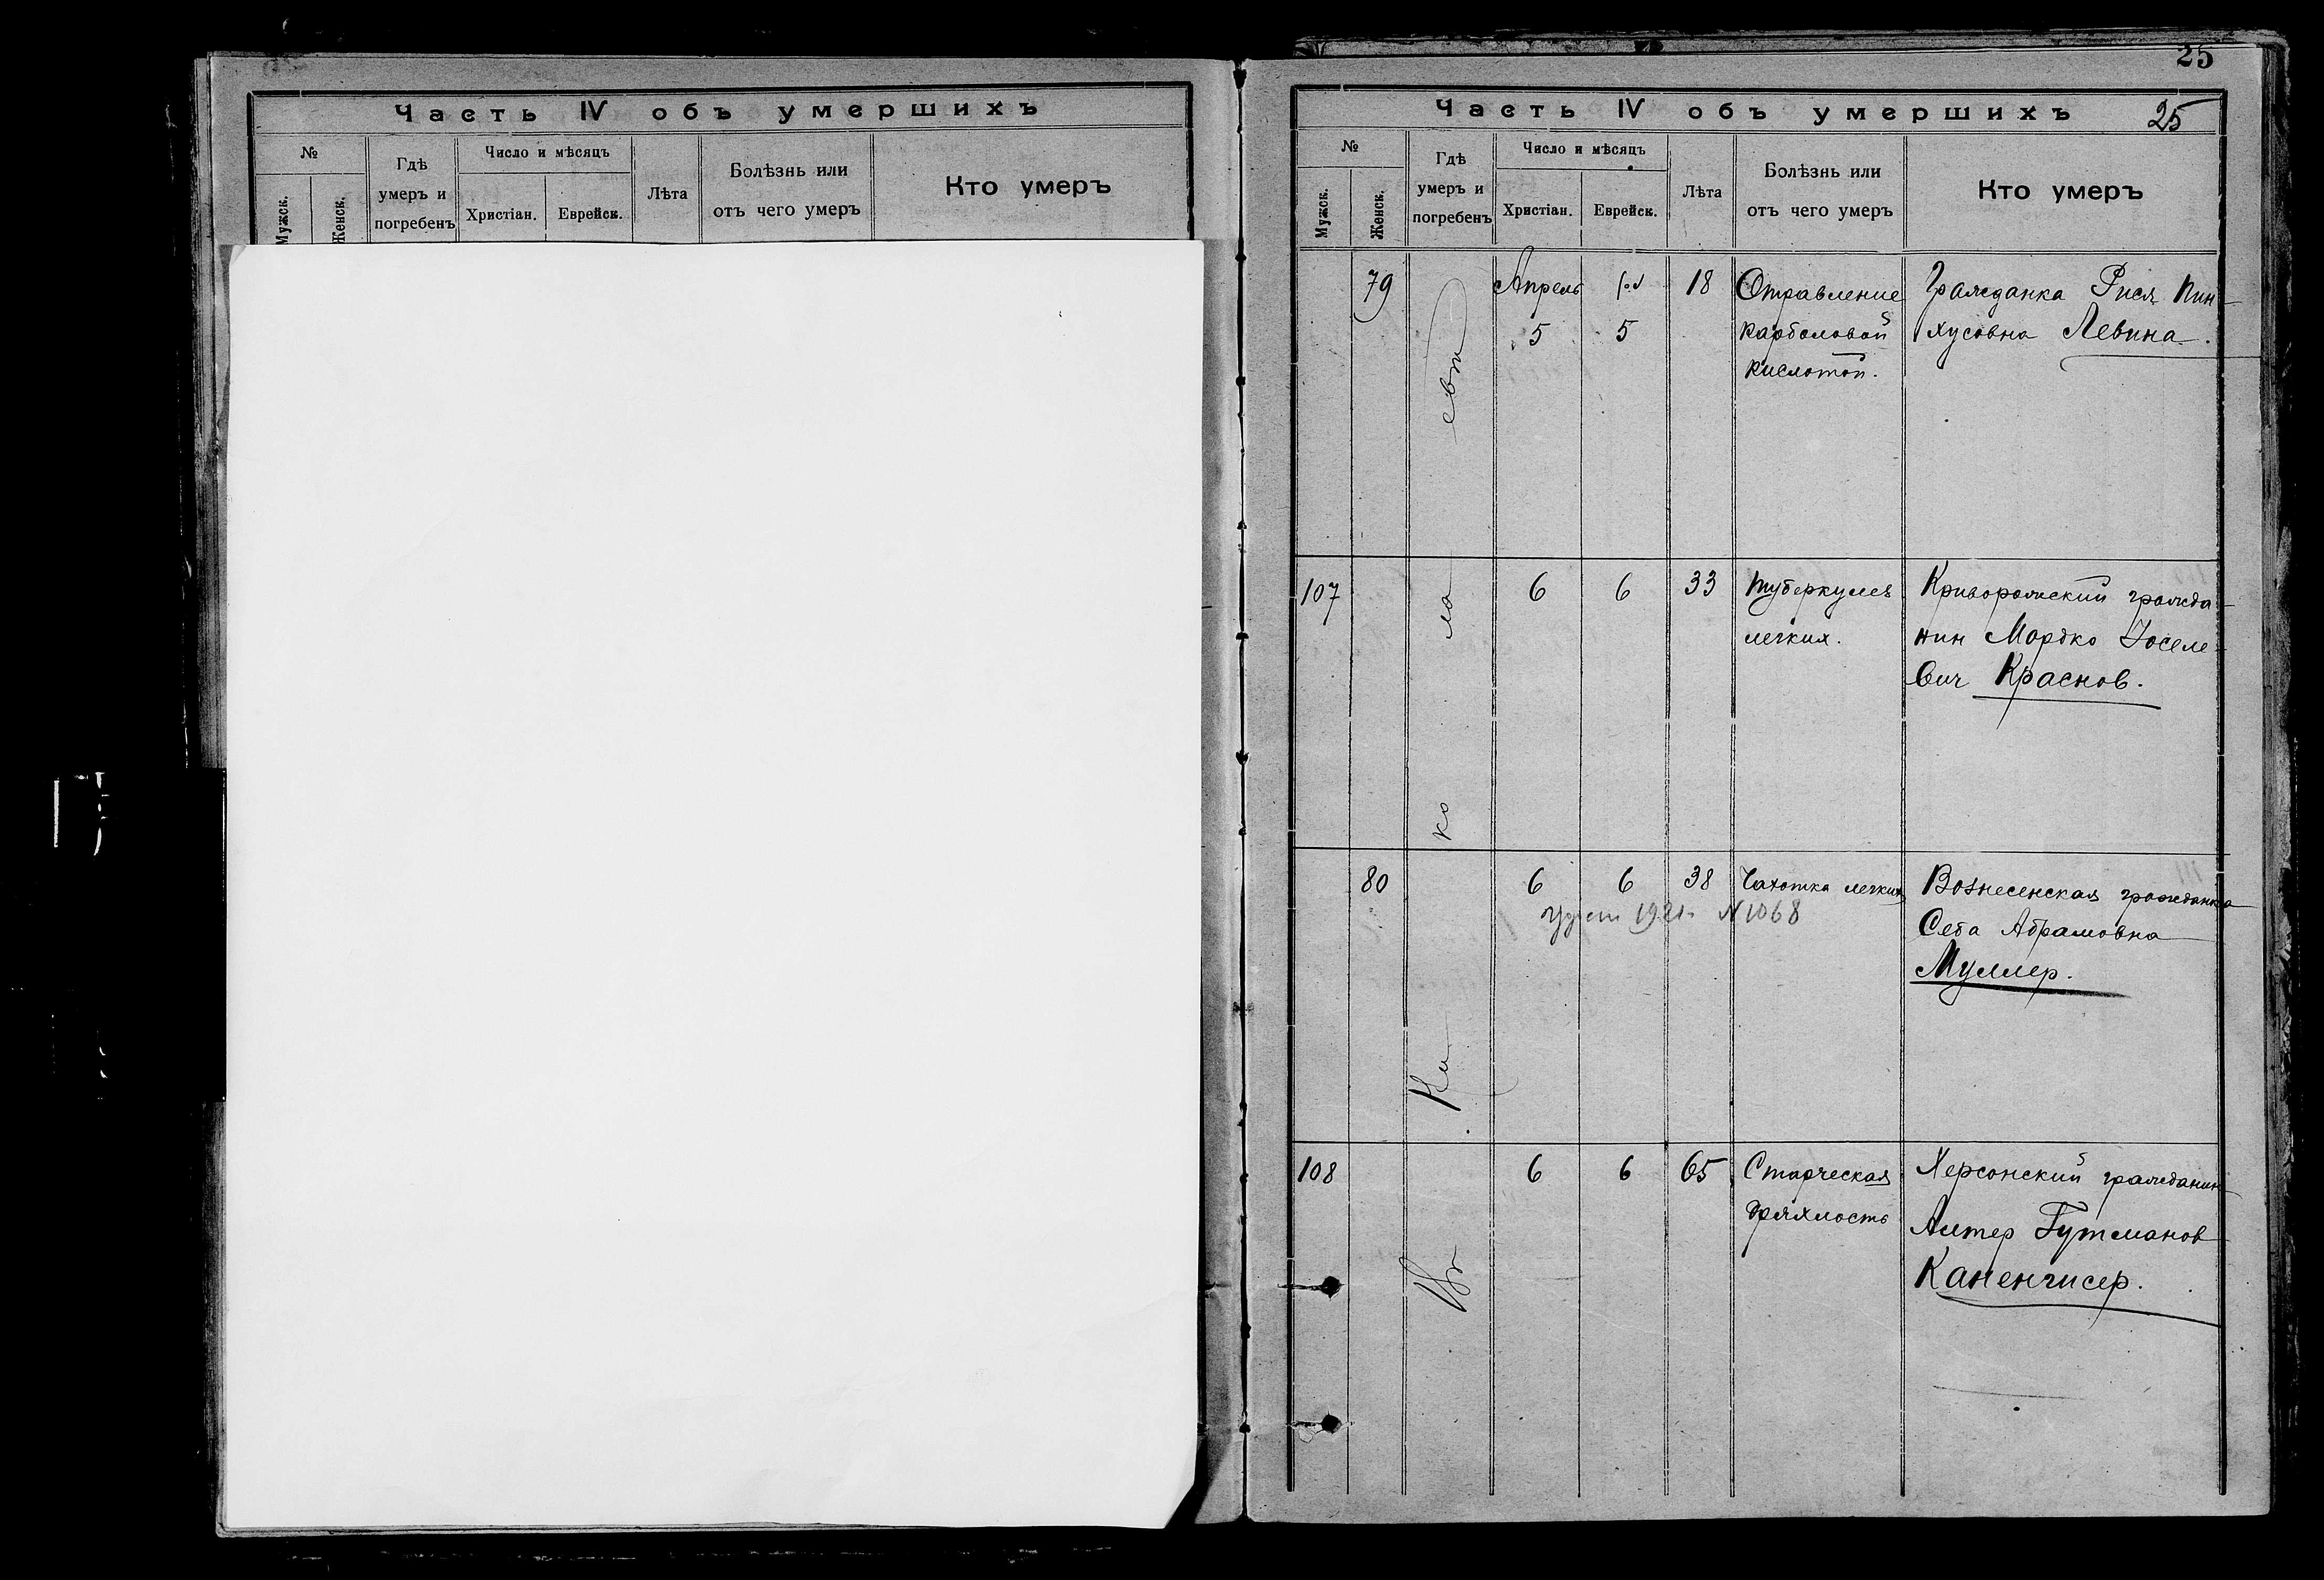 Часть IV объ умершихъ
№
Мужск.
Женск.
Гдѣ
умеръ и
погребенъ
Число и мѣсяцъ
Христіан.
Еврейск.
Лѣта
Болѣзнь или
отъ чего умеръ
Кто умеръ
25
Часть IV объ умершихъ
25
№
Мужск.
Женск.
Гдѣ
умеръ и
погребенъ
Число и мѣсяцъ
Христіан.
Еврейск.
Лѣта
Болѣзнь или
отъ чего умеръ
Кто умеръ
В г. Николаеве
79
Апрель
5
5
18
Отравление
карболовой
кислотой.
Гражданка Рися Пин-
хусовна Левина.
107
6
6
33
Туберкулез
легких.
Криворожский гражда-
нин Мордко Иоселе-
вич Краснов.
80
6
6
38
Чахотка легких
1921 г. N 1068
Вознесенская гражданка
Сева Абрамовна
Муллер.
108
6
6
65
Старческая
дряхлость
Херсонский гражданин
Алтер Гутманов
Каненгисер.